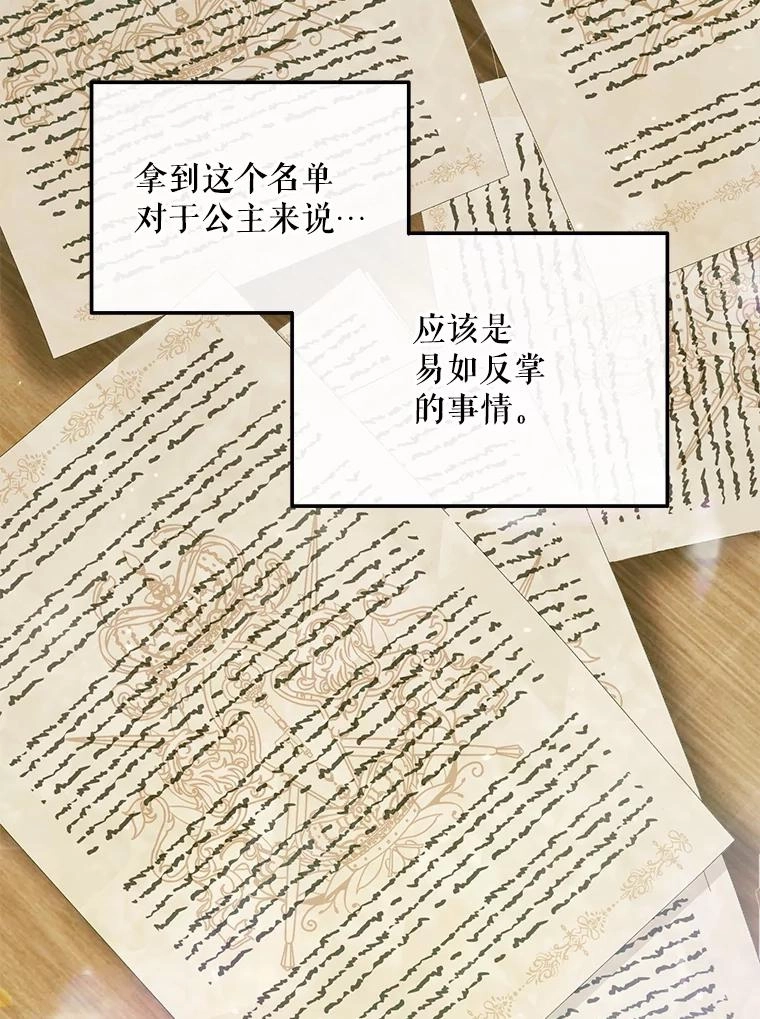 拿到这个名单
对于公主来说…
应该是
易如反掌
的事情。